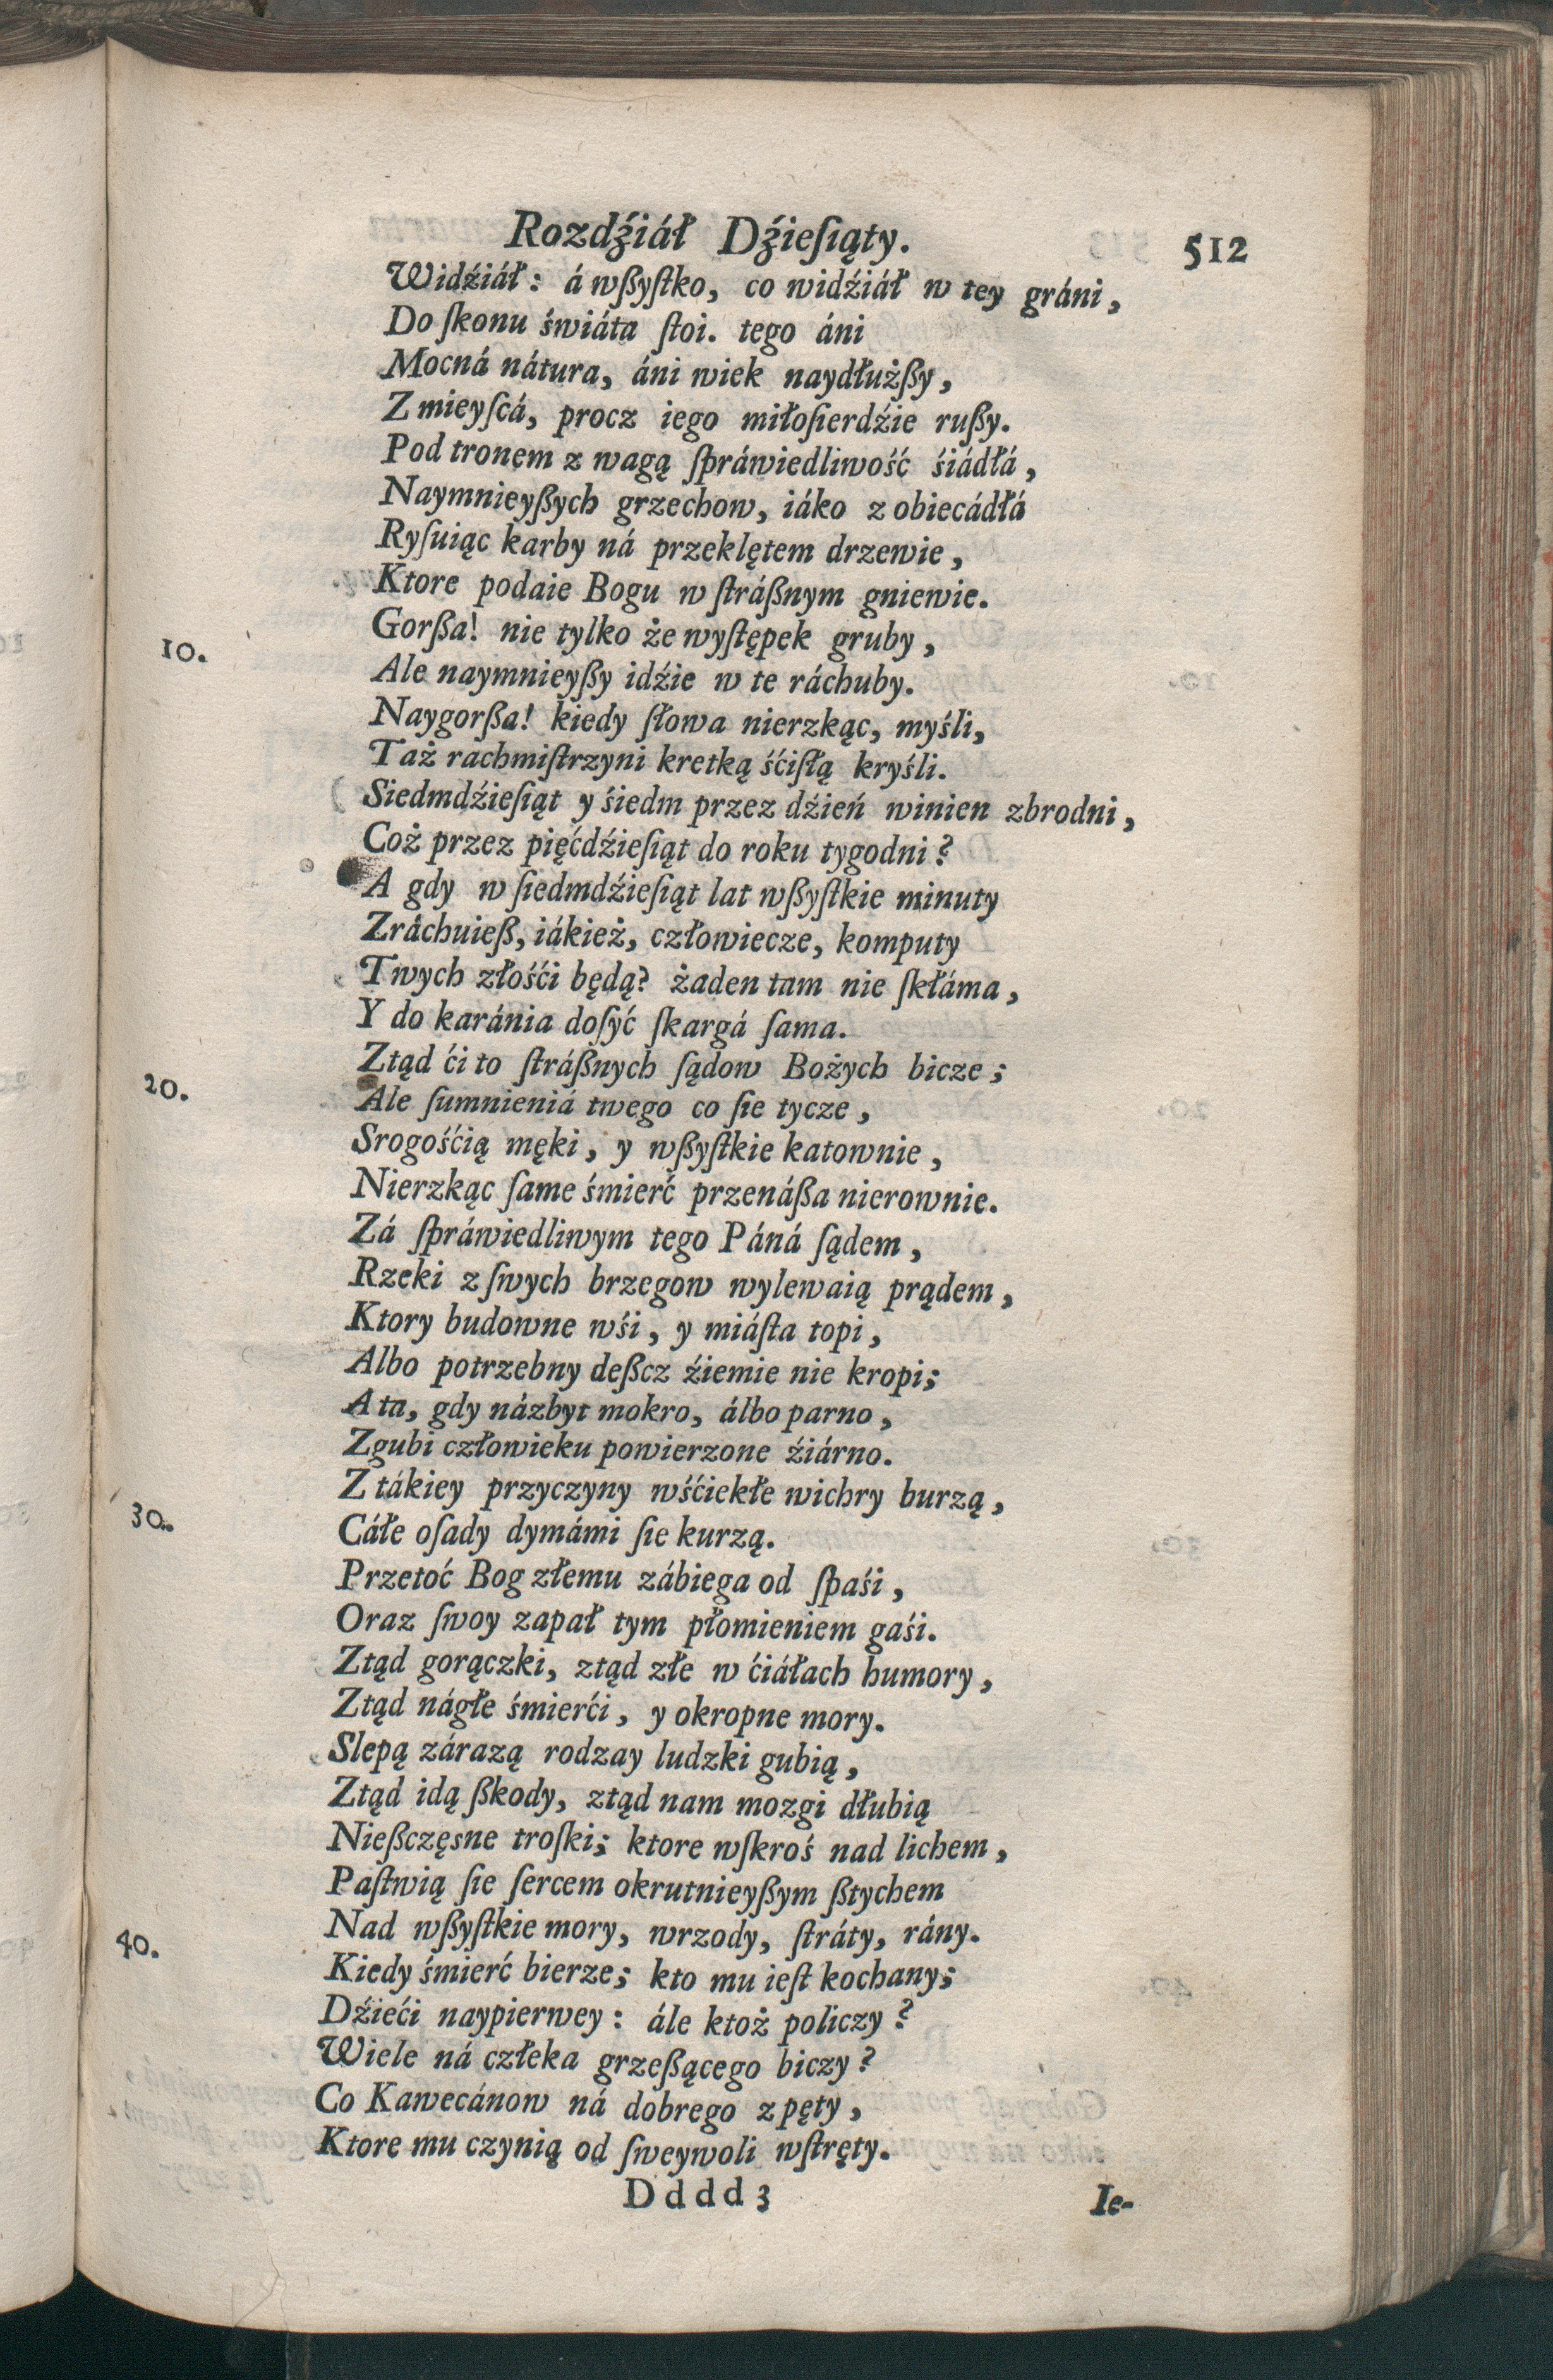 Rozdźiáł Dźieſiąty. 512
Widźiáł: á wßyſtko, co widźiáł w tey gráni,
Do ſkonu świáta ſtoi. tego áni
Mocná nátura, áni wiek naydłużßy,
Z mieyſcá, procz iego miłoſierdźie rußy.
Pod tronem z wagą ſpráwiedliwość śiádłá,
Naymnieyßych grzechow, iáko z obiecádłá
Ryſuiąc karby ná przeklętem drzewie,
Ktore podaie Bogu w ſtráßnym gniewie.
Gorßa! nie tylko że wyſtępek gruby,
10. Ale naymnieyßy idźie w te ráchuby.
Naygorßa! kiedy ſłowa nierzkąc, myśli,
Taż rachmiſtrzyni kretką śćiſłą kryśli.
Siedmdźieſiąt y śiedm przez dźień winien zbrodni,
Coż przez pięćdźieſiąt do roku tygodni?
A gdy w ſiedmdźieſiąt lat wßyſtkie minuty
Zráchuieß, iákież, człowiecze, komputy
Twych złośći będą? żaden tam nie ſkłáma,
Y do karánia doſyć ſkargá ſama.
Ztąd ći to ſtráßnych ſądow Bożych bicze;
20. Ale ſumnieniá twego co ſie tycze,
Srogośćią męki, y wßyſtkie katownie,
Nierzkąc ſame śmierć przenáßa nierownie.
Zá ſpráwiedliwym tego Páná ſądem,
Rzeki z ſwych brzegow wylewaią prądem,
Ktory budowne wśi, y miáſta topi,
Albo potrzebny deßcz źiemie nie kropi;
A ta, gdy názbyt mokro, álbo parno,
Zgubi człowieku powierzone źiárno.
Z tákiey przyczyny wśćiekłe wichry burzą,
30. Cáłe oſady dymámi ſie kurzą.
Przetoć Bog złemu zábiega od ſpaśi,
Oraz ſwoy zapał tym płomieniem gaśi.
Ztąd gorączki, ztąd złe w ćiáłach humory,
Ztąd nágłe śmierći, y okropne mory.
Slepą zárazą rodzay ludzki gubią,
Ztąd idą ßkody, ztąd nam mozgi dłubią
Nießczęsne troſki; ktore wſkroś nad lichem,
Paſtwią ſie ſercem okrutnieyßym ßtychem
Nad wßyſtkie mory, wrzody, ſtráty, rány.
40. Kiedy śmierć bierze; kto mu ieſt kochany;
Dźieći naypierwey: ále ktoż policzy?
Wiele ná człeka grzeßącego biczy?
Co Kawecánow ná dobrego z pęty,
Ktore mu czynią od ſweywoli wſtręty.
Dddd 3 Ie-